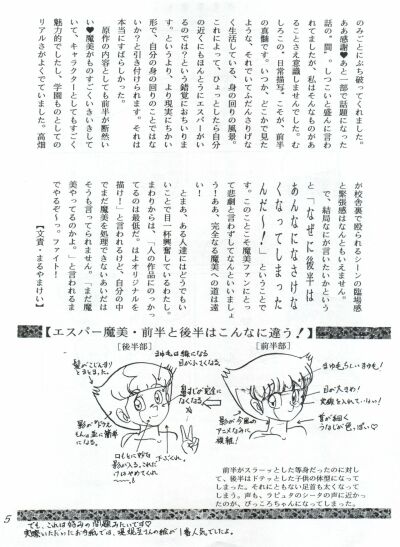 のみごとにぶち破ってくれました。
ああ感謝♥あと一部で話題になった
話の〝間〟。しつこいと盛んに言わ
れてましたが、私はそんなものがあ
ることさえ意識しませんでした。む
しろこの〝日常描写〟こそが、前半
の真髄です。いつか、どこかで見た
ような、それでいてふだんさりげな
く生活している、身の回りの風景。
これによって、ひょっとしたら自分
の近くにもほんとうにエスパーがい
るのでは？という錯覚におちいりま
す。というより、より現実にちかい
形で、自分の身の回りのことではな
いか？と引き付けられます。それは
本当にすばらしかった。
原作の内容としても前半が断然い
い♥魔美がものすごくいきいきして
いて、キャラクターとしてもすごく
魅力的でしたし、学園ものとしての
リアルさがよくでていました。高畑
が校舎裏で殴られるシーンの臨場感
と緊張感はなんともいえません。
で、結局なにが言いたいかという
と「なぜに後半は
あんなになさけな
くなってしまった
んだ〜！」ということで
す。このことこそ魔美ファンにとっ
て悲劇と言わずしてなんといいましょ
う！ああ、完全なる魔美への道は遠
い！
とまあ、ある人達にはどうでもい
いことで目一杯興奮しているわたし。
まわりからは、「人の作品にのっかっ
てるのは最低だ。はよオリジナルを
描け！」と言われるけど、自分の中
でまだ魔美を処理できないあいだは
そうも言ってられません。「まだ魔
美やってるのかよ。」と言われるま
でやるぞ〜っ。ファイト！
【文責・まるやまけい】
【エスパー魔美・前半と後半はこんなに違う！】
［後半部］
まゆ毛は細になる
目が小さくなる。
髪がこじんまり
とまとまった。
鼻すじが完全に
なくなる。
影が"ドラえ
もん"並に簡単
になる。
口もとに妙な
影が入る。これだ
けはやめてくれ
〜〜〜！
下ぶくれ。
［前半部］
まゆ毛らしいまゆ毛！
目が大きめ！
実線を入れていない！
影が今風の
アニメなみに
複雑！
首が細く
うなじが色っぽい♡
前半がスラーッとした等身だったのに対し
て、後半はドテッとした子供の体型になって
しまった。それにともない足首も太くなって
しまう。声も、ラピュタのシータの声に近かっ
たのが、ぴっころちゃんになってしまった。
でも、これは好みの問題みたいです♡
実際いただいたお手紙では、後半さんの絵が1番人気でしたよ。
5